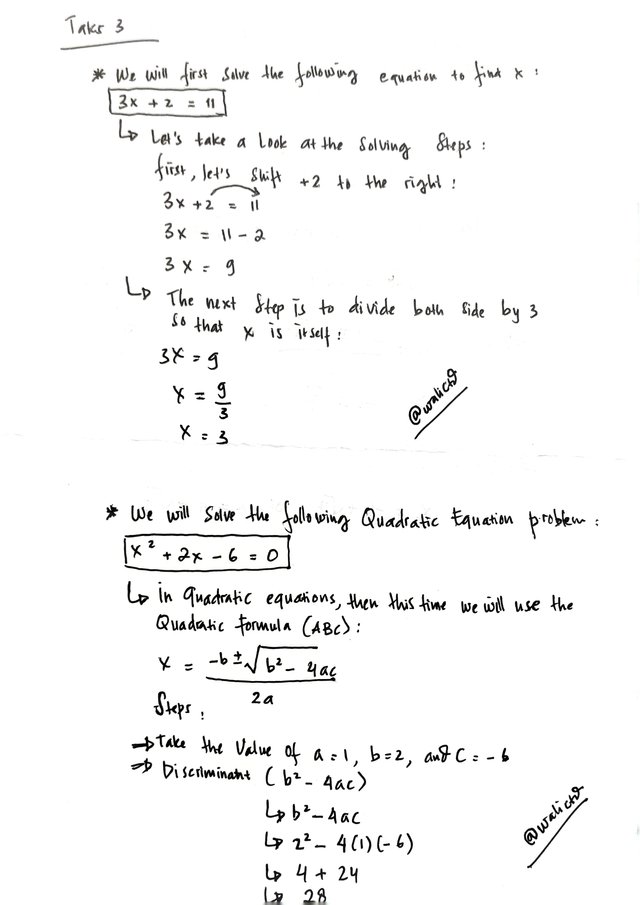 Taks 3
* We will first solve the following equation to find x :
3x + 2 = 11
↳ Let's take a look at the solving steps :
first, let's shift +2 to the right :
3x + 2 = 11
3x = 11 - 2
3x = 9
↳ The next step is to divide both side by 3
so that x is itself :
3x = 9
x = 9/3
x = 3
@walictd
* We will solve the following Quadratic Equation problem :
x² + 2x - 6 = 0
↳ in quadratic equations, then this time we will use the
Quadratic formula (ABC) :
x = -b ± √b² - 4ac / 2a
Steps :
⇒ Take the value of a = 1, b = 2, and c = - 6
⇒ Discriminant (b² - 4ac)
↳ b² - 4ac
↳ 2² - 4(1)(-6)
↳ 4 + 24
↳ 28
@walictd